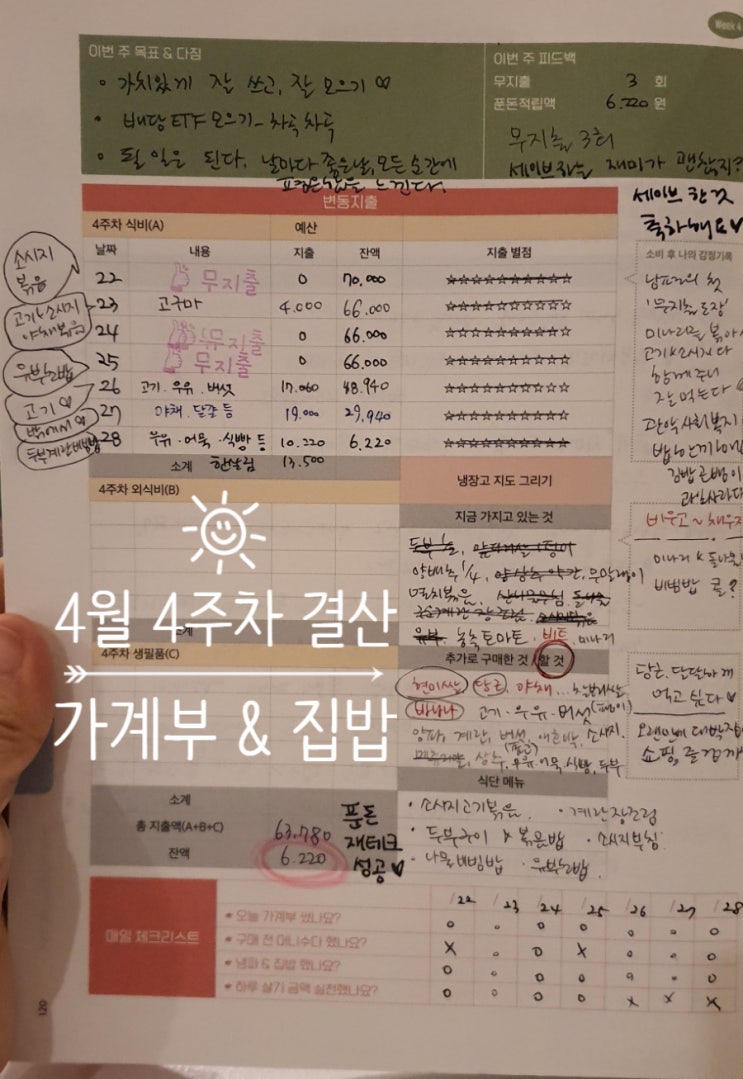 Week 4
이번 주 목표 & 다짐
• 가치있게 잘 쓰고, 잘 모으기 ♡
• 배당 ETF 모으기 - 차곡차곡
• 될 일은 된다. 날마다 좋은날, 모든 순간에
느낀다.
이번 주 피드백
무지출 3 회
푼돈적립액 6.220 원
무지출 3회
세이브하는 재미가 괜찮지?
세이브 한 것
축하해요♡
변동지출
4주차 식비(A) 예산
날짜 내용 지출 잔액 지출 별점
22 무지출 0 70.000 ☆☆☆☆☆☆☆☆☆☆
23 고구마 4.000 66.000 ☆☆☆☆☆☆☆☆☆☆
24 무지출 0 66.000 ☆☆☆☆☆☆☆☆☆☆
25 무지출 0 66.000 ☆☆☆☆☆☆☆☆☆☆
26 고기·우유·버섯 17.060 48.940 ☆☆☆☆☆☆☆☆☆☆
27 야채·달걀 등 19.000 29.940 ☆☆☆☆☆☆☆☆☆☆
28 우유·어묵·식빵 등 10.220 6.220 ☆☆☆☆☆☆☆☆☆☆
소계 한살림 13.500
소시지
볶음
고기&소시지
야채볶음
유부초밥
고기♡
밖에서♡
두부계란비빔밥
소비 후 나의 감정기록
남편의 첫
'무지출 도장'
미나리를 볶아서
고기&소시지 다
함께 주니
잘 먹는다♡
관악사회복지
4주차 외식비(B)
소계
4주차 생필품(C)
냉장고 지도 그리기
지금 가지고 있는 것
양배추 1/4, 무말랭이
멸치볶음,
유부, 농축토마토, 비트, 미나리
비우고~채우자
비빔밥 콜?
추가로 구매한 것 / 할 것
현미쌀 당근, 야채...
바나나 고기·우유·버섯(팽이)
양파, 계란, 버섯, 애호박, 소시지.
상추, 우유, 어묵, 식빵, 두부
당근, 단단하게
먹고 싶다♡
쇼핑, 즐겁게
식단 메뉴
• 소시지고기볶음. • 계란장조림
• 두부구이 & 볶음밥 • 소시지부침.
• 나물비빔밥 • 유부초밥.
소계
총 지출액(A+B+C) 63.780
잔액 6.220
푼돈
재테크
성공♡
4월 4주차 결산
가계부 & 집밥
매일 체크리스트
/22 /23 /24 /25 /26 /27 /28
★ 오늘 가계부 썼나요? o o o o o o o
★ 구매 전 머니수다 했나요? x o o x o o o
★ 냉파 & 집밥 했나요? o o o o o o o
★ 하루 살기 금액 실천했나요? o o o o x x x
120